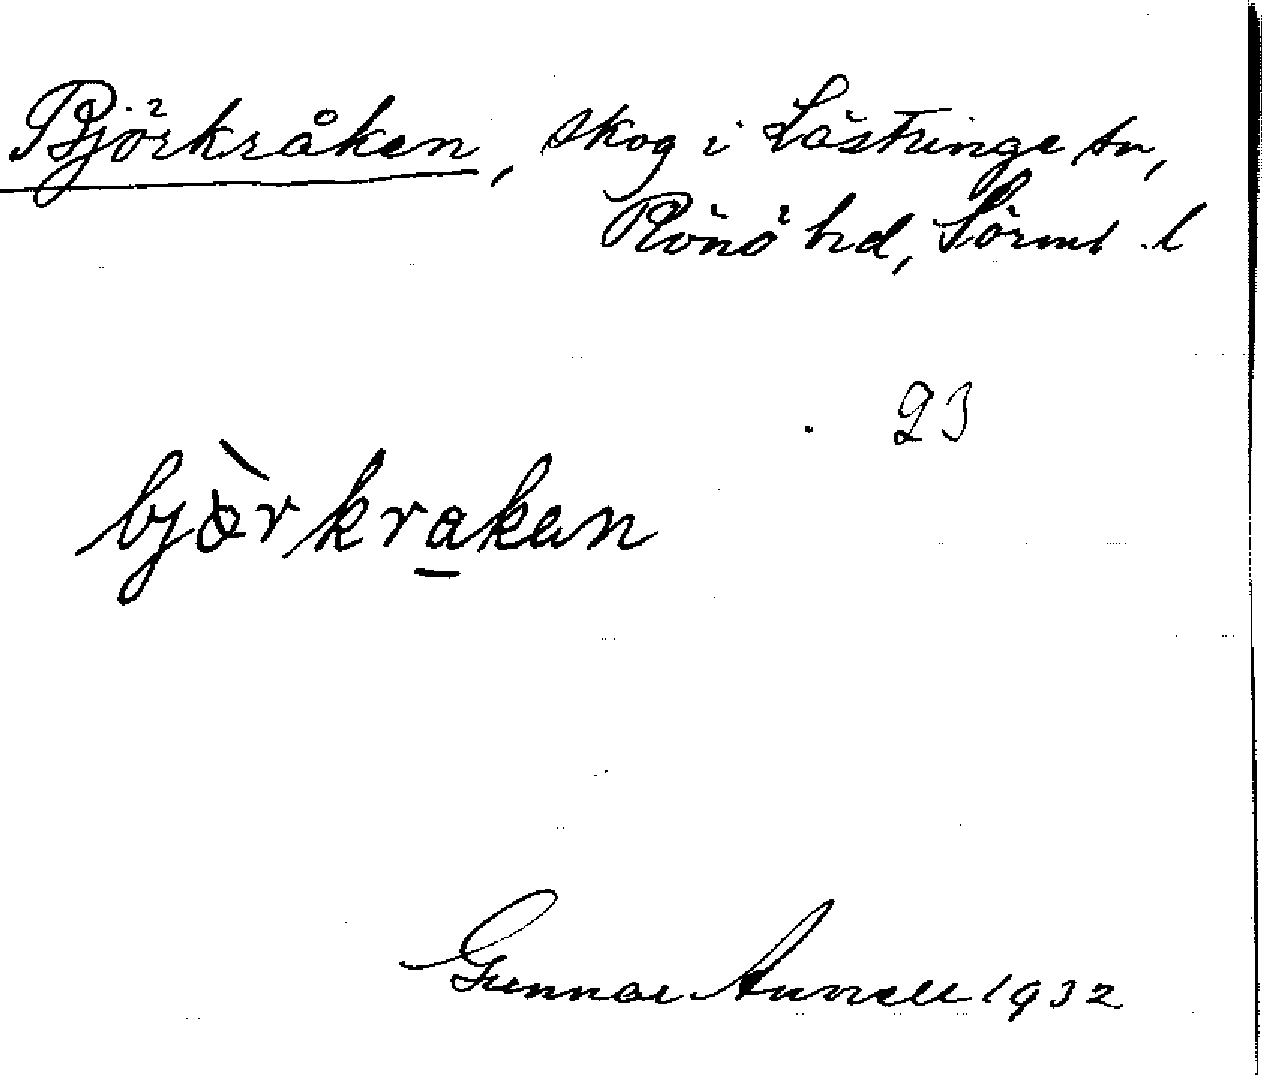 Björkråken, skog i Lästringe sn,
Rönö hd, Sörml. l
23
bjòrkrakan
Gunnar
1932